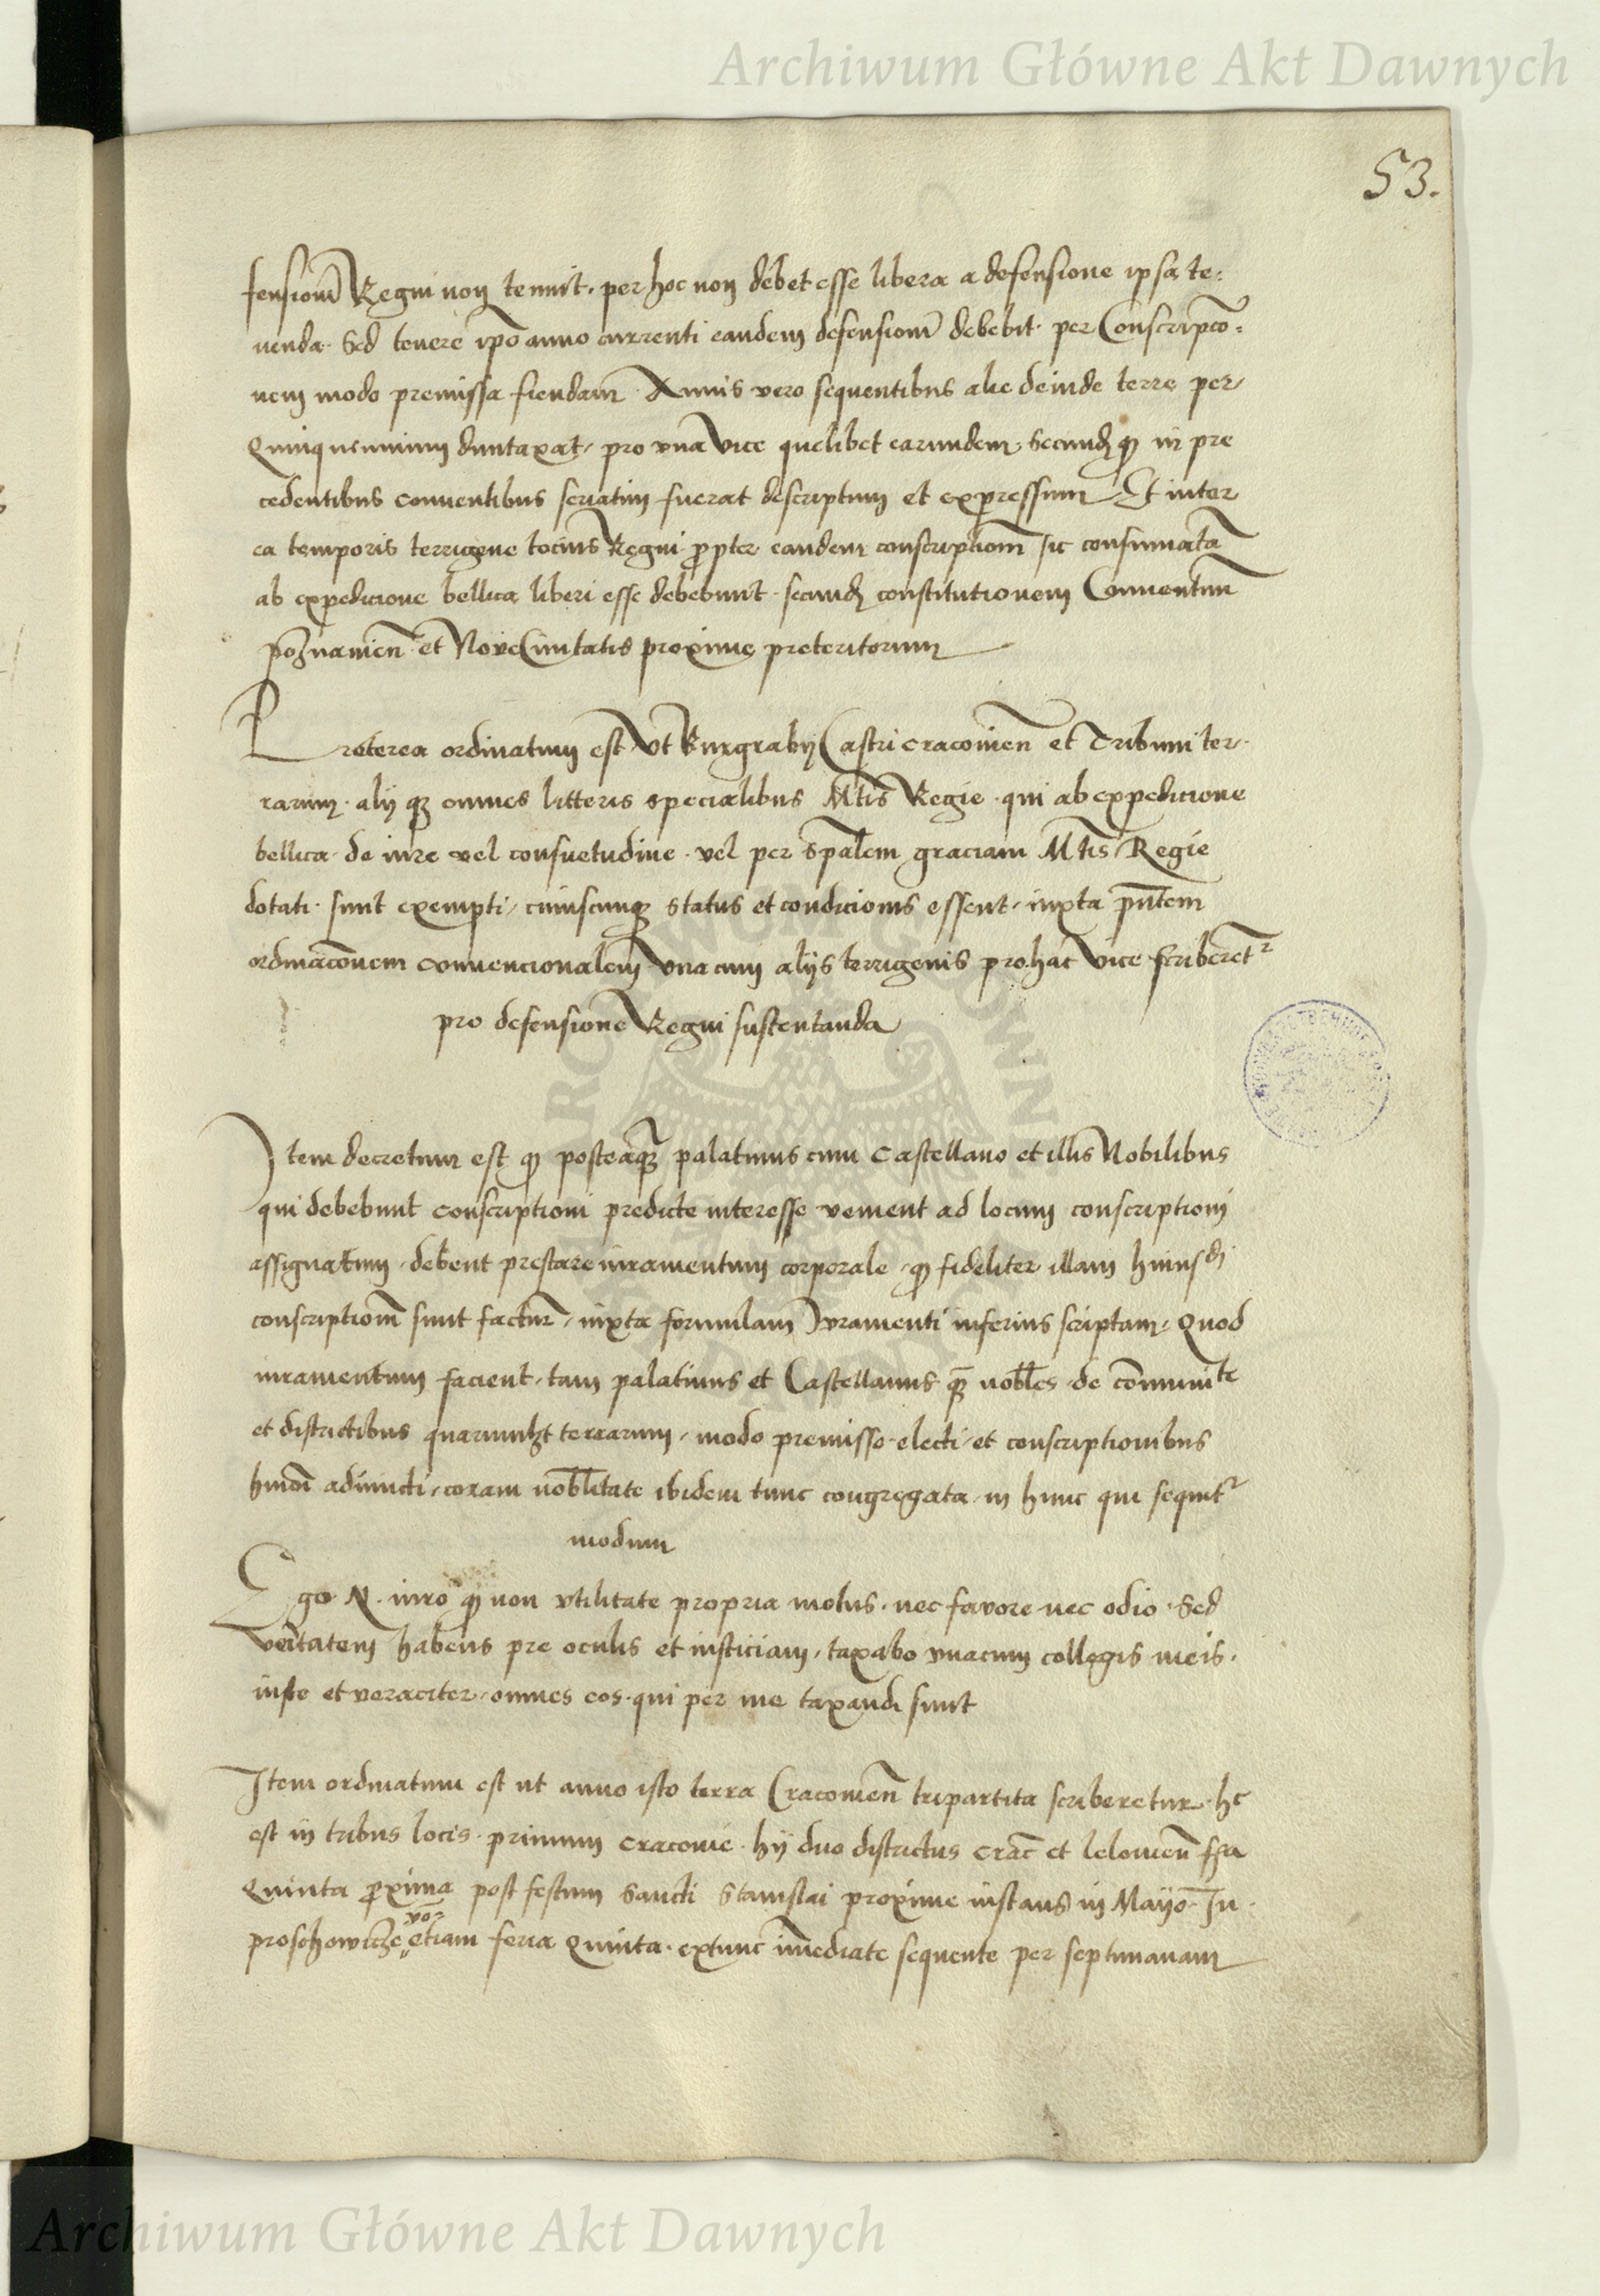 Archiwum Główne Akt Dawnych
53.
fensionē Regni non tenuit. per hoc non debet esse libera a defensione ipsa te-
nenda. Sed tenere ipō anno currenti eandem defensionē debebit. per Conscripco-
nem modo premissa fiendam. Annis vero sequentibus alie deinde terre per
Quinquennium duntaxat, pro vna Vice quelibet earundem, Secundꝫ qꝫ in pre
cedentibus conventibus seriatim fuerat descriptum et expressum. Et inter
ea temporis terrigene tocius Regni ꝓpter eandem conscriptionē sic consumatā
ab expedicione bellica liberi esse debebunt. secundꝫ constitutionem Conventuum
Poznanieñ et Nove Civitatis proxime preteritorum
Preterea ordinatum est Vt Burgrabij Castri cracovieñ et Tribuni ter-
rarum. alij qꝫ omnes litteris specialibus Mtis Regie. qui ab expedicione
bellica. de iure vel consuetudine. vel per Spalem graciam Mtis Regie
dotati. sunt exempti, cuiuscunqꝫ status et condicionis essent, iuxta pñtem
ordinacōnem convencionalem Vna cum alijs terrigenis pro hac Vice scriberetr
pro defensione Regni sustentanda
Item decretum est qꝫ posteaqꝫ palatinus cum Castellano et illis Nobilibus
qui debebunt conscriptioni predicte interesse venient ad locum conscriptioni
assignatum. debent prestare iuramentum corporale. qꝫ fideliter illam huiusdi
conscriptionē sunt facturi, iuxta formulam Iuramenti inferius scriptam. Quod
iuramentum facient, tam palatinus et Castellanus qꝫ nobles de cōmunite
et districtibus quarumlꝫt terrarum, modo premisso electi, et conscriptionibus
hmōi adiuncti, coram nobilitate ibidem tunc congregata, in hunc qui sequitr
modum
Ego N. iuro qꝫ non vtilitate propria motus. nec favore nec odio. Sed
veritatem habens pre oculis et iusticiam, taxabo vnacum collegis meis.
iuste et veraciter, omnes eos. qui per me taxandi sunt
Item ordinatum est ut anno isto terra Cracovieñ tripartita scriberetur. hc
est in tribus locis. primum Cracovie. hij duo districtus Crac̄ et lelovieñ fꝫia
Quinta ꝓxima post festum Sancti Stanislai proxime instans in Mayo. In
vo
proschowicze etiam feria Quinta. extunc im̄ediate sequente per septimanam
Archiwum Główne Akt Dawnych